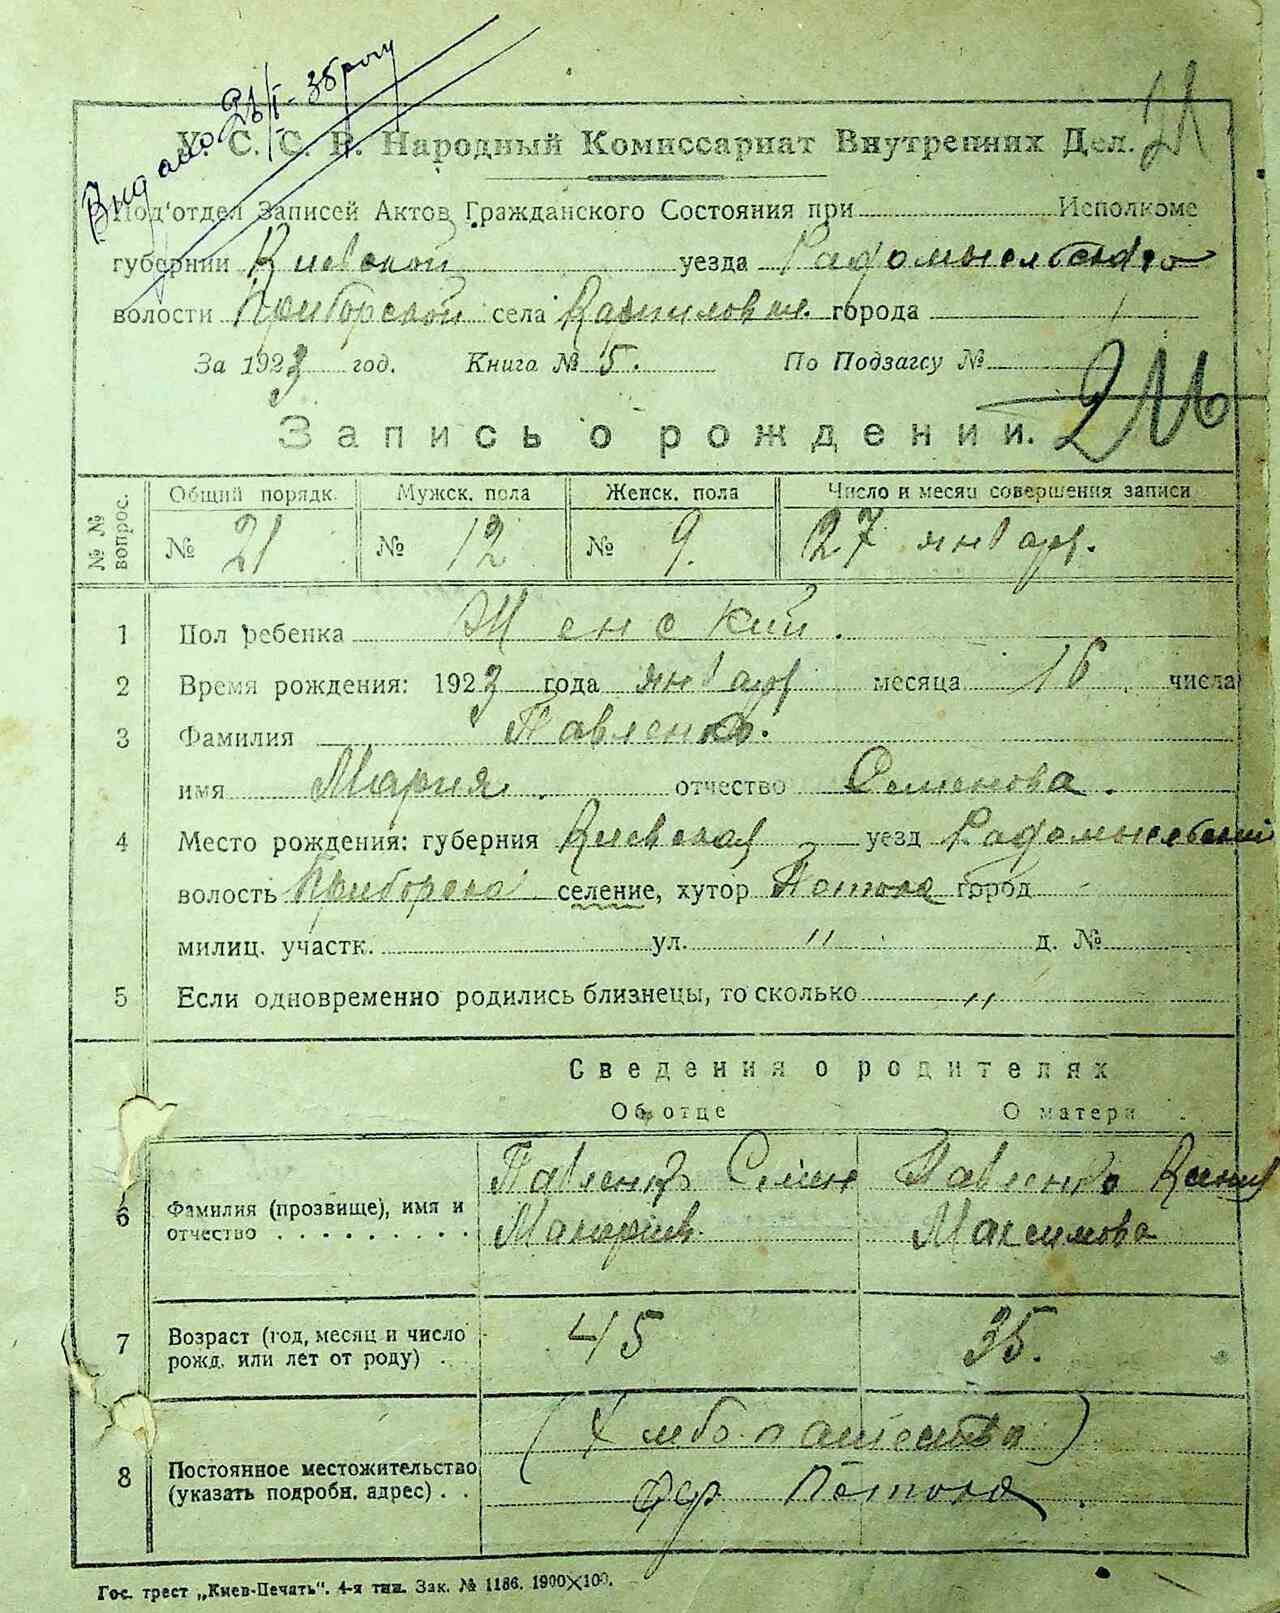 Видано 28/I-35 року
У. С. С. Р. Народный Комиссариат Внутренних Дел. 21
Под'отдел Записей Актов Гражданского Состояния при Исполкоме
губернии Киевской уезда Радомысльского
волости Приборской села города
За 1923 год. Книга № 5. По Подзагсу №
Запись о рождении.
№№ вопрос. Общий порядк. Мужск. пола Женск. пола Число и месяц совершения записи
№ 21 № 12 № 9. 27 января.
1 Пол ребенка Женский.
2 Время рождения: 1923 года января месяца 16 числа
3 Фамилия Павленко.
имя Мария. отчество Семенова.
4 Место рождения: губерния Киевская уезд Радомысльский
волость Приборско селение, хутор город -
милиц. участк. ул. " д. №
5 Если одновременно родились близнецы, то сколько "
Сведения о родителях
Об отце О матери
6 Фамилия (прозвище), имя и отчество Павленко Семен Павленко
Максимова
7 Возраст (год, месяц и число рожд. или лет от роду) 45 35.
8 Постоянное местожительство (указать подробн. адрес)
Гос. трест „Киев-Печать". 4-я тип. Зак. № 1186. 1900×100.